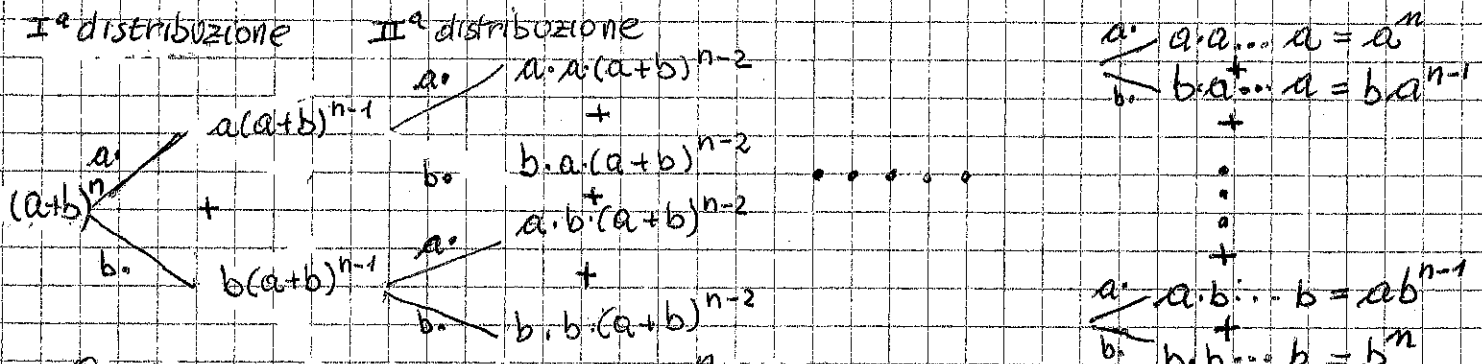 Iª distribuzione IIª distribuzione
a· a·a·(a+b)^{n-2}
+
a· a(a+b)^{n-1}
b· b·a·(a+b)^{n-2}
(a+b)^n + +
a· a·b·(a+b)^{n-2}
+
b· b(a+b)^{n-1}
b· b·b·(a+b)^{n-2}
. . . . .
a· a·a... a = a^n
+
b· b·a... a = b a^{n-1}
+
.
.
.
+
a· a·b... b = ab^{n-1}
+
b· b·b... b = b^n
n